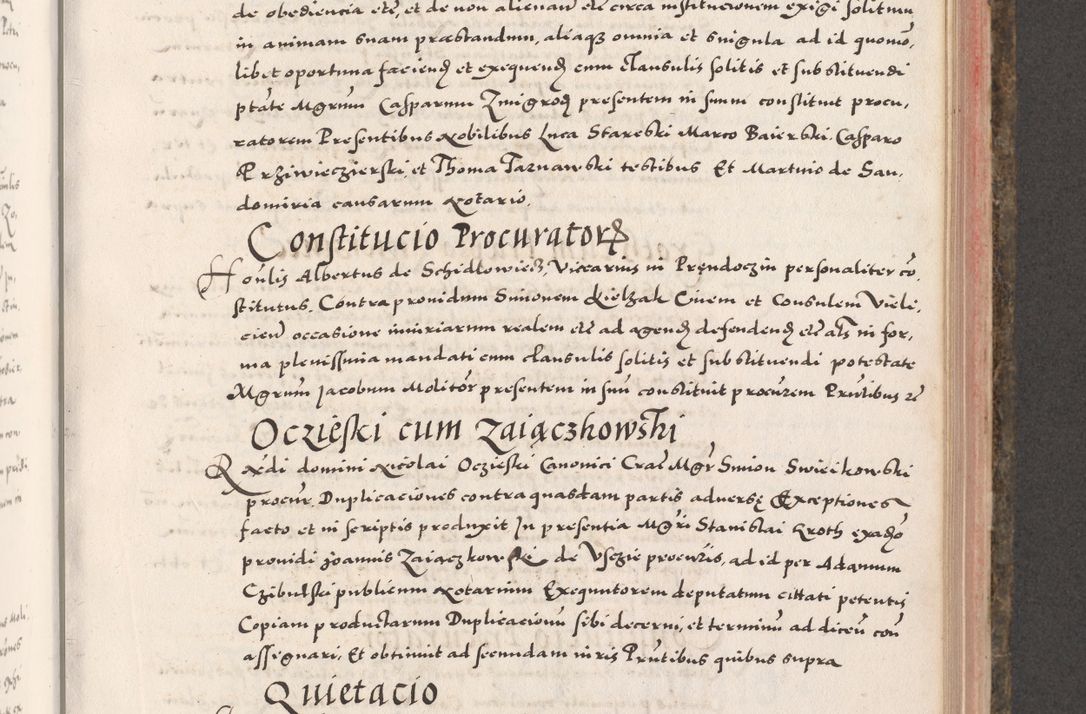 de obediencia etc, et de non alienan etc circa institucionem exigi solitum
in animam suam præstandum, aliaqȝ omnia et singula ad id quomo,
libet oportuna faciend et exequend cum clausulis solitis et substituendi
ptate Mgrum Casparum Zmigrod presentem in suum constituit procu,
ratorem Presentibus Nobilibus Luca Stareski Marco Baierski Casparo
Prziwieczierski, et Thoma Tarnawski testibus Et Martino de San,
domiria causarum Notario.
Constitucio Procurator
Honlis Albertus de Schidlowiecz, Viccarius in Prendoczin personaliter co
stitutus, Contra providum Simonem Kielzak Civem et Consulem Vieli,
cien occasione iniuriarum realem etc ad agend defendend etc als in for,
ma plenissima mandati cum clausulis solitis et substituendi potestate
Mgrum Jacobum Molitor presentem in suu constituit procurem Pruntibus rc
Oczieski cum Zaiączkowski
R Ndi domini Nicolai Oczieski Canonici Crac Mgr Simon Swieikowski
procur Duplicaciones contra quasdam partis adversę Exceptiones
facto et in scriptis produxit In presentia Mgri Stanislai Kroth
providi Joannis Zaiączkowski de Usczie procuris, ad id per Adamum
Czibulski publicum Notarium Exequutorem deputatum cittati petentis
Copiam productarum Duplicacionum sibi decerni, et terminu ad dicen con
assignari, Et obtinuit ad secundam iuris Pruntibus quibus supra
Quietacio